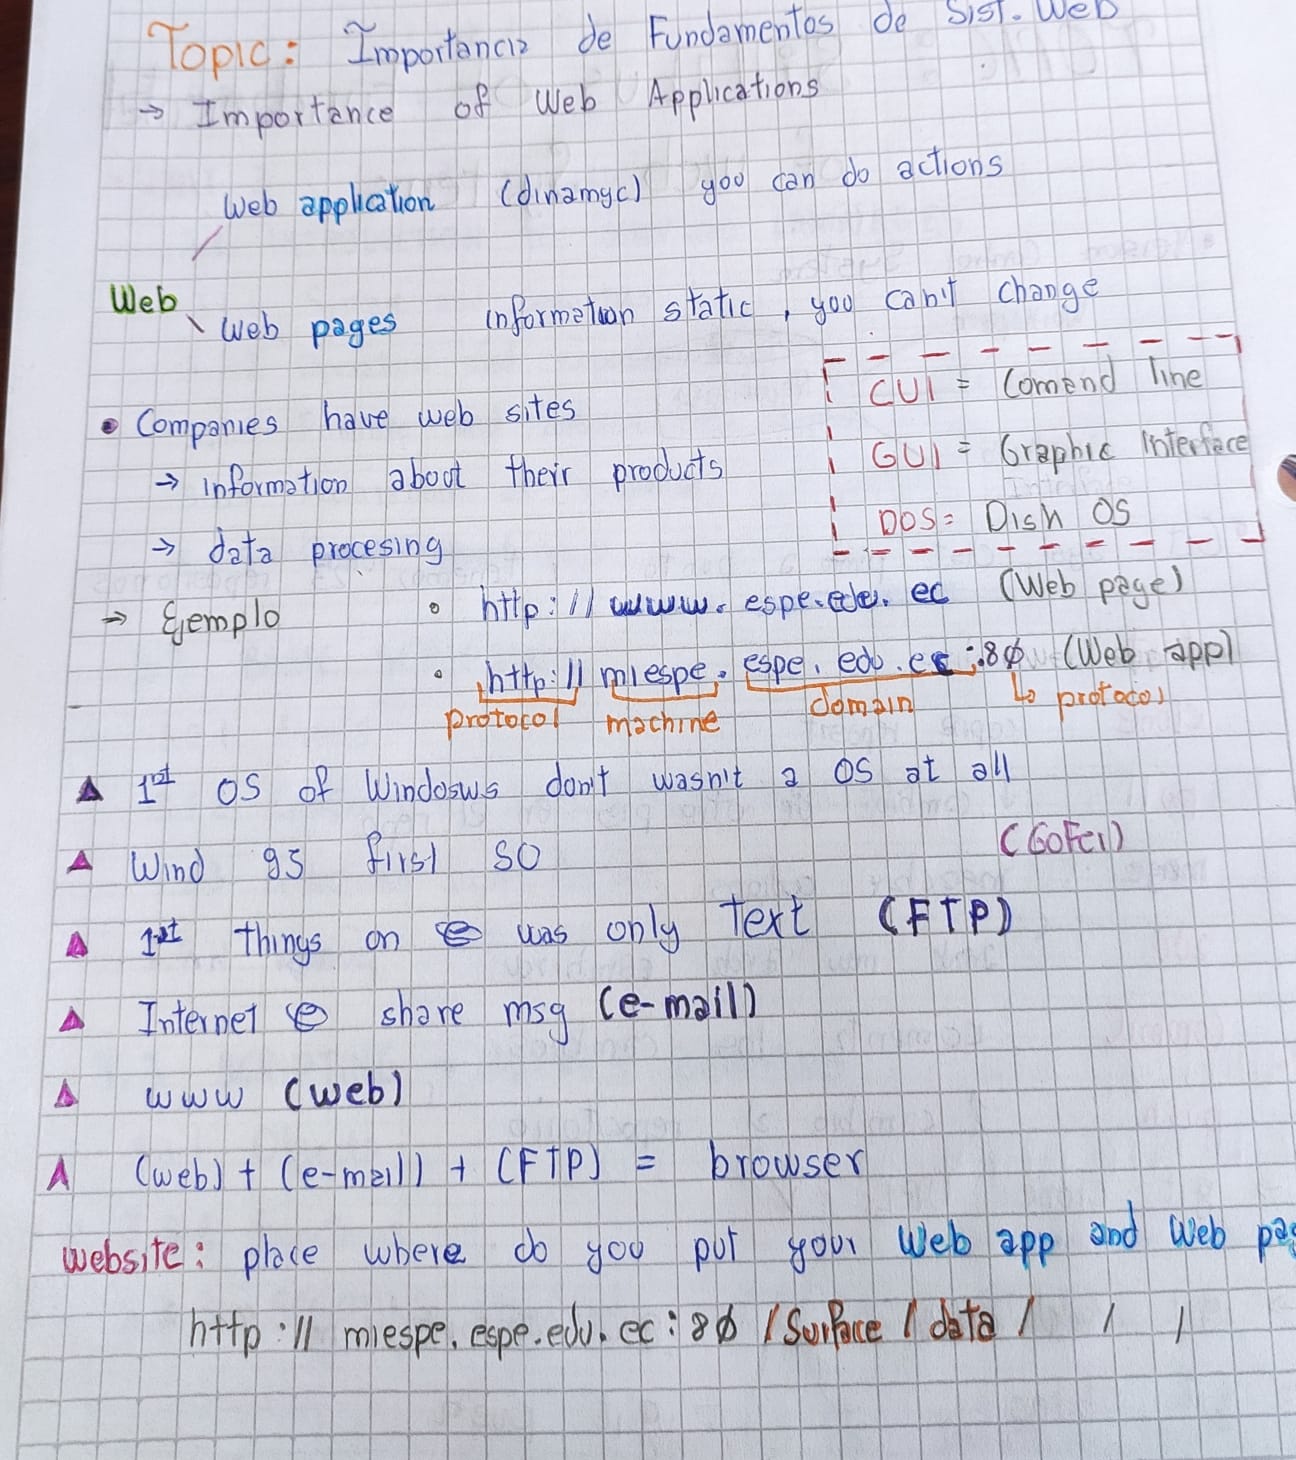 Topic: Importancia de Fundamentos de Sist. Web
→ Importance of Web Applications
Web application (dinamyc) you can do actions
Web
Web pages information static, you can't change
CUI = Comand line
GUI = Graphic Interface
DOS = Dish OS
• Companies have web sites
→ information about their products
→ data procesing
→ Ejemplo • http://www.espe.edu.ec (Web page)
• http://miespe.espe.edu.ec:80 (Web app)
protocol machine domain ↳ protocol
1st OS of Windosws don't wasn't a OS at all
Wind 95 first SO (GOFCI)
1st things on e was only Text (FTP)
Internet e share msg (e-mail)
www (web)
(web) + (e-mail) + (FTP) = browser
website: place where do you put your Web app and Web pag
http://miespe.espe.edu.ec:80 /Surface / data / / /